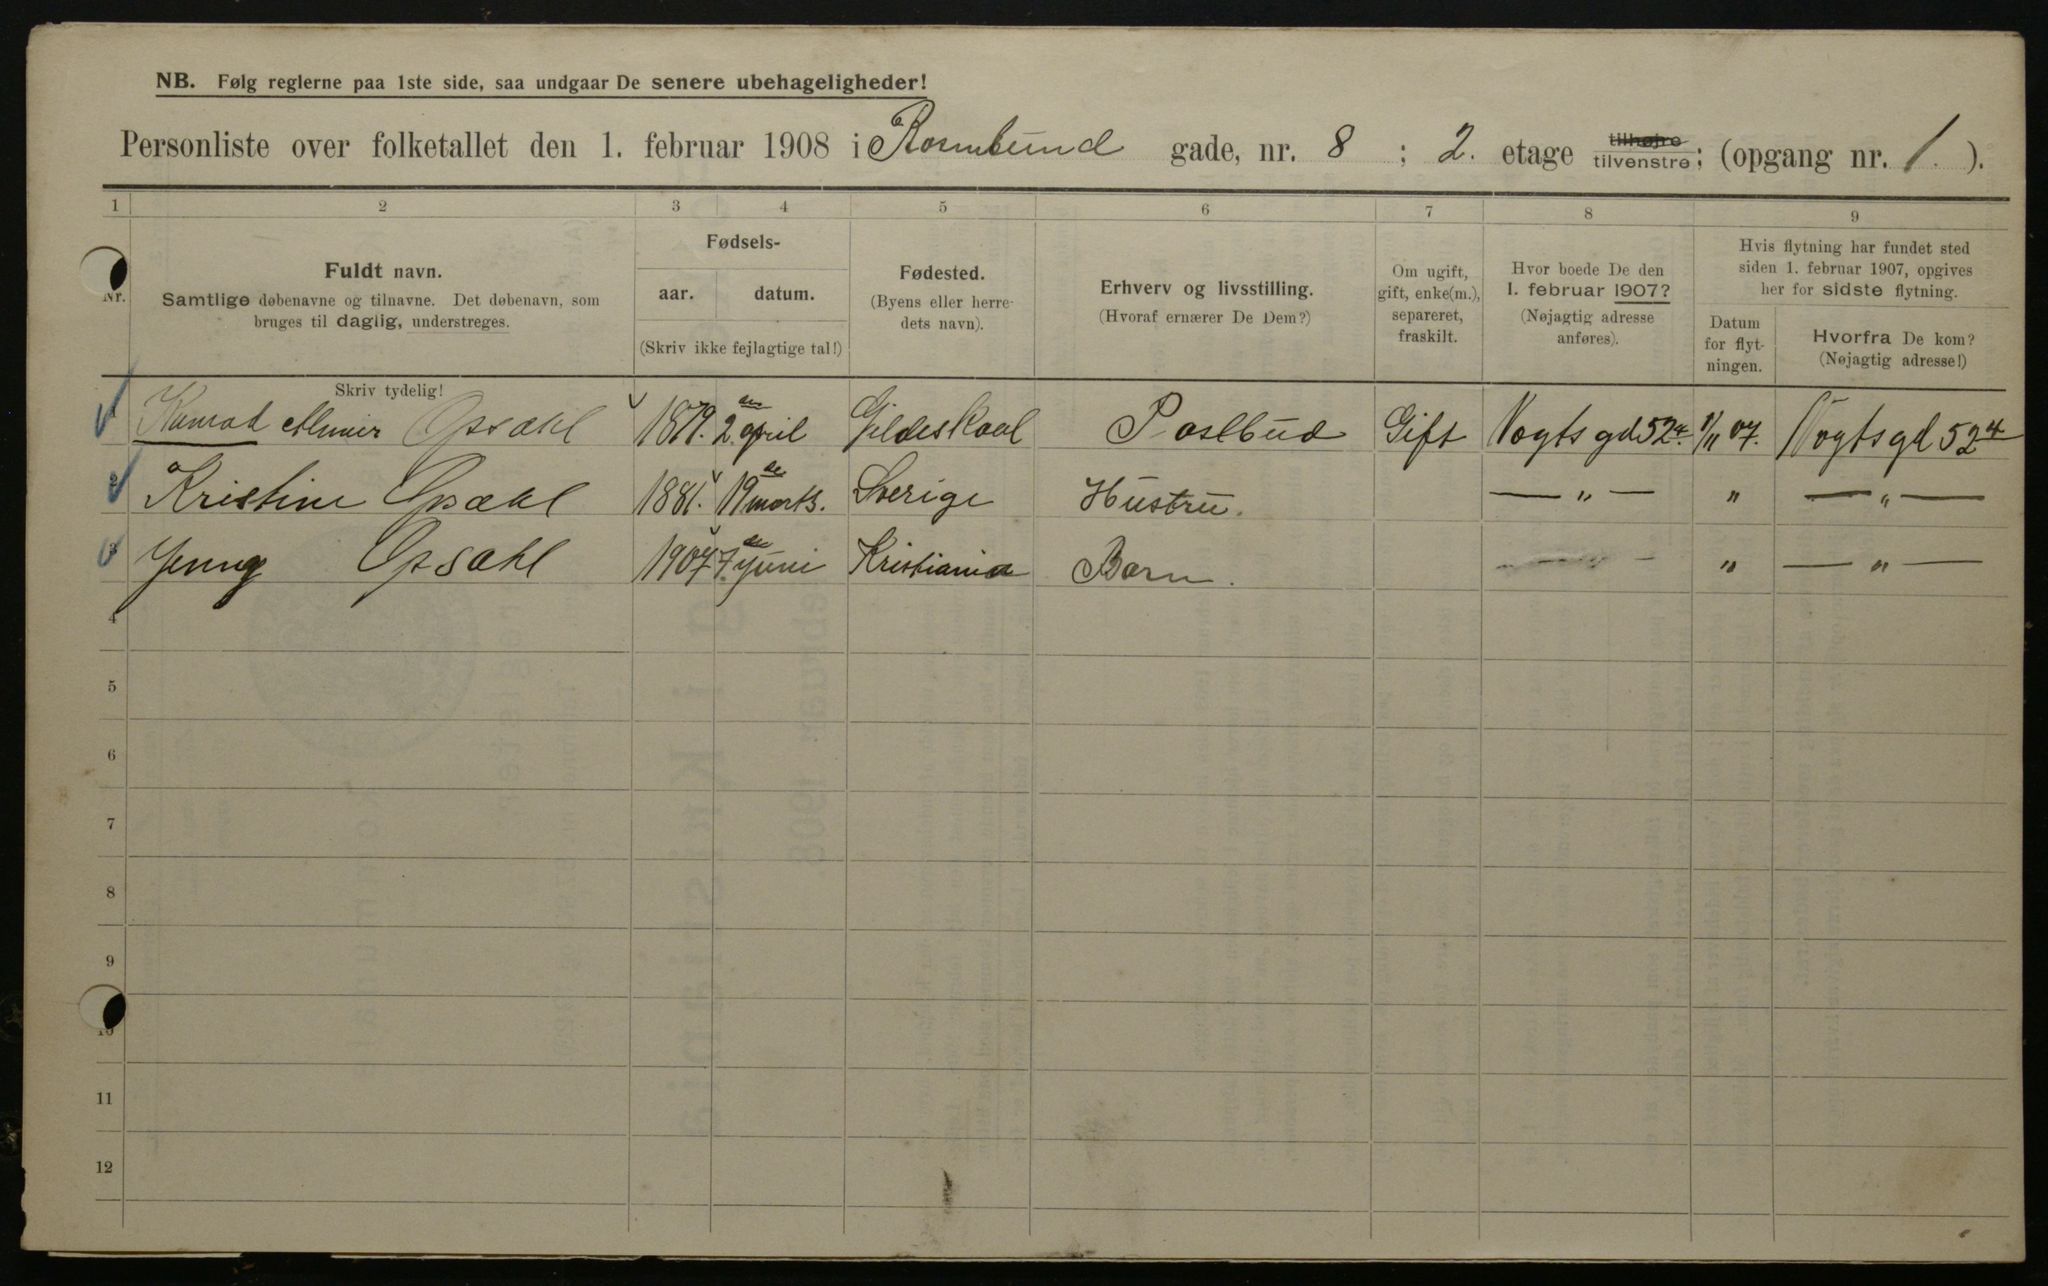 NB. Følg reglerne paa 1ste side, saa undgaar De senere ubehageligheder!
Personliste over folketallet den 1. februar 1908 i Rosenlund gade, nr. 8 ; 2. etage tilhøjre tilvenstre; (opgang nr. 1. ).
1 2 3 4 5 6 7 8 9
Nr.
Fuldt navn.
Samtlige døbenavne og tilnavne. Det døbenavn, som
bruges til daglig, understreges.
Skriv tydelig!
Fødsels-
aar. datum.
(Skriv ikke fejlagtige tal!)
Fødested.
(Byens eller herre-
dets navn).
Erhverv og livsstilling.
(Hvoraf ernærer De Dem?)
Om ugift,
gift, enke(m.),
separeret,
fraskilt.
Hvor boede De den
1. februar 1907?
(Nøjagtig adresse
anføres).
Hvis flytning har fundet sted
siden 1. februar 1907, opgives
her for sidste flytning.
Datum
for flyt-
ningen.
Hvorfra De kom?
(Nøjagtig adresse!)
1 Konrad Opsahl 1879. 2den april Gildeskaal Postbud Gift Vogts gd 52 4. 1/11 07. Vogts gd 52 4
2 Kristine Opsahl 1881. 19de marts. Sverige Hustru. — „ — „ — „ —
3 Jenny Opsahl 1907 7de Juni Kristiania Barn. „ — „ —
4
5
6
7
8
9
10
11
12